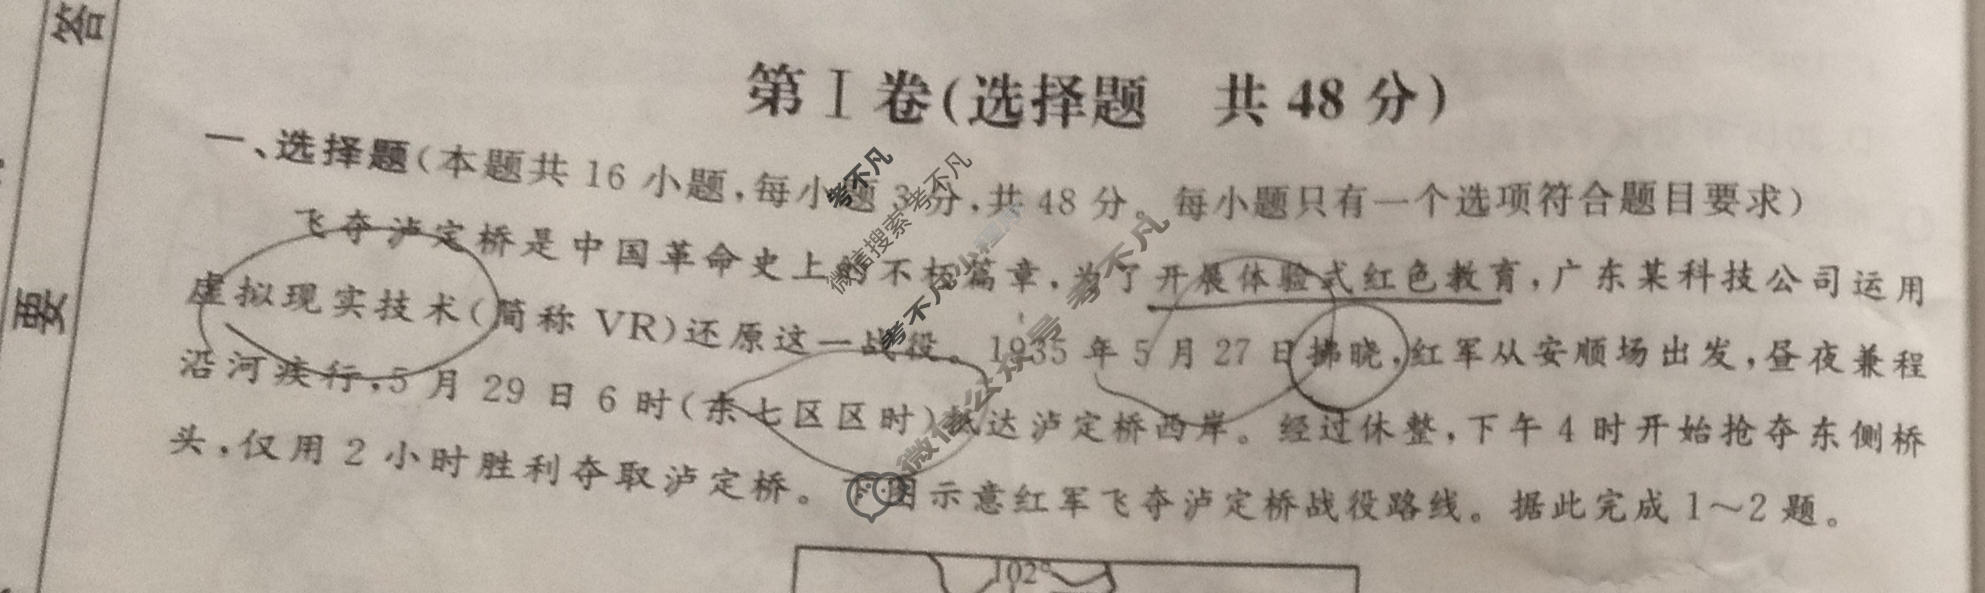 答
要
第Ⅰ卷(选择题 共48分)
一、选择题(本题共16小题,每小题3分,共48分。每小题只有一个选项符合题目要求)
飞夺泸定桥是中国革命史上的不朽篇章,为了开展体验式红色教育,广东某科技公司运用
虚拟现实技术(简称VR)还原这一战役。1935年5月27日拂晓,红军从安顺场出发,昼夜兼程
沿河疾行,5月29日6时(东七区区时)抵达泸定桥西岸。经过休整,下午4时开始抢夺东侧桥
头,仅用2小时胜利夺取泸定桥。下图示意红军飞夺泸定桥战役路线。据此完成1~2题。
102°
考不凡
微信搜索考不凡
考不凡小程序
微信公众号 考不凡